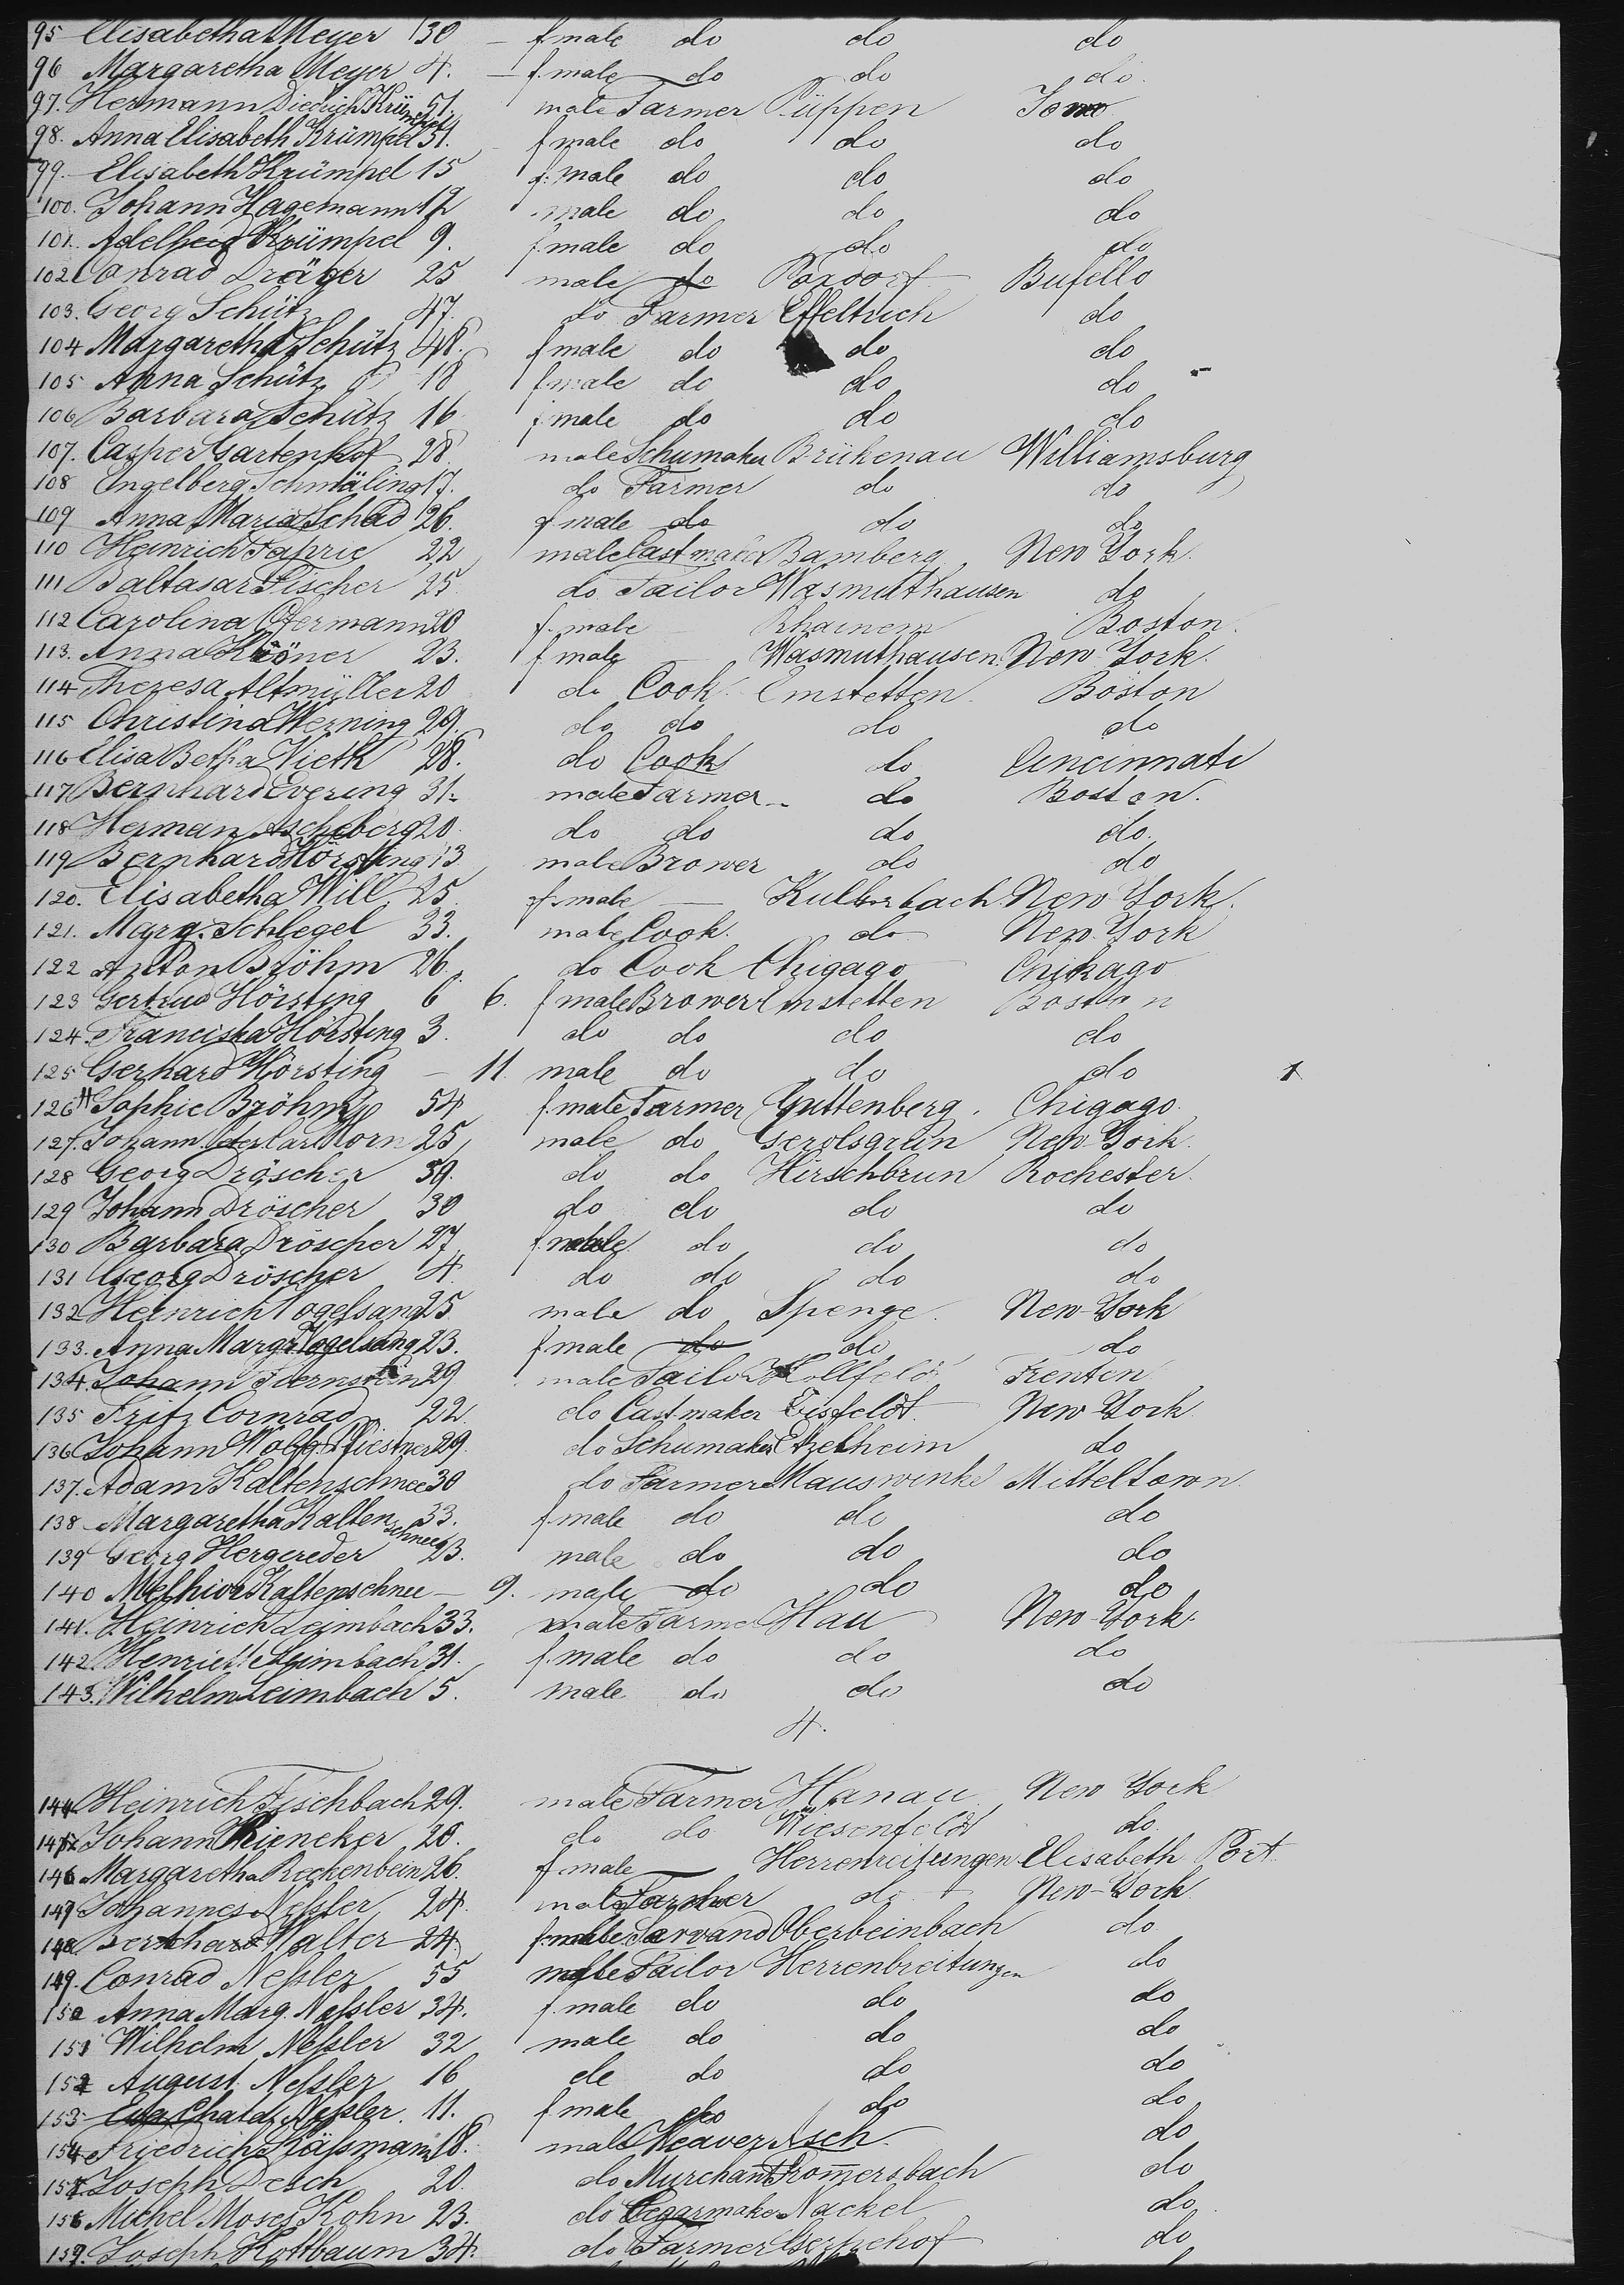 95 Elisabetha Meyer 30 - f. male do do do
96 Margaretha Meyer 4. - f. male do do do
97. Hermann Diedrich Krümpel 51. male Farmer Püppen Iowa
98. Anna Elisabeth Krümpel 51. f male do do do
99. Elisabeth Krümpel 15 f. male do do do
100. Johann Hagemann 12 male do do do
101. Adelheid Krümpel 9. f. male do do do
102 Conrad Dräger 25 male do Poxdorf Bufello
103. Georg Schütz 47. do Farmer Effeltrich do
104 Margaretha Schütz 48. f male do do do
105 Anna Schütz 18 f male do do do
106 Barbara Schütz 16 f. male do do do
107. Casper Gartenhof 28. male Schumaker Brückenau Williamsburg
108 Engelberg Schmäling 17. do Farmer do do
109 Anna Maria Schad 26. f male do do do
110 Heinrich Fapric 22 male Castmaker Bamberg New York.
111 Baltasar Fischer 25 do Tailor Wasmuthausen do
112 Carolina Ofermann 20 f. male Rhainem Boston.
113. Anna Kröner 23. f male - Wasmuthausen. New York.
114 Theresa Altmüller 20 do Cook Emstetten. Boston
115 Christina Werning 29. do do do do
116 Elisa Betha Vieth 28. do Cook do Cincinnati
117 Bernhard Evering 31. male Farmer do Boston.
118 Herman Ascheberg 20 do do do do.
119 Bernhard Hörsting 13 male Brower do do
120. Elisabetha Will 25. f. male — Kullmbach New York.
121. Marg. Schlegel 33. male Cook. do New-York
122 Anton Bröhm 26. do Cook Chigago Chikago
123 Gertrud Hörsting 6 6. f male Brower Emstetten Boston
124. Franciska Hörsting 3. do do do do
125 Gerhard Hörsting - 11. male do do do
126 Sophie Bröhm 54 f. male Farmer Guttenberg. Chigago.
127. Johann Carl Horn 25, male do Gerolsgrün New-York.
128 Georg Dröscher 59. do do Hirschbrun Rochester.
129 Johann Dröscher 30 do do do do
130 Barbara Dröscher 27 f. male do do do
131 Georg Dröscher 4. do do do do
132 Heinrich Vogelsang 25 male do Spenge. New-York
133. Anna Margr. Vogelsang 23. f male do do do
134. Johann 29 male Tailor Hollfeld Trenton
135 Fritz Cornrad 22. do Castmaker Eisfeldt. New York
136 Johann Wolfg. Pfiestner 29. do Schumaker Etzelheim do
137. Adam Kaltenschnee 30 do Farmer Mauswinkel Mitteltown.
138 Margaretha Kaltenschnee 33. f male do do do
139 Georg Hergereder 23. male do do do
140 Melhior Kaltenschnee - 9. male do do do
141. Heinrich Leimbach 33. male Farmer Hau New-York.
142. Henriette Leimbach 31. f. male do do do
143. Wilhelm Leimbach 5. male do do do
4.
144 Heinrich Fischbach 29. male Farmer Hanau New York
145 Johann Krieneker 20. do do Wiesenfeldt do.
146 Margaretha Reckenbein 26. f. male — Herrenreitungen Elisabeth Port
147 Johannes Neßler 24. male Farmer do New-York
148 Walter 24. f. male Servand Oberbeinbach do.
149. Conrad Neßler 55 male Tailor Herrenbreitungen do
150 Anna Marg. Neßler 34. f. male do do do
151 Wilhelm Neßler 32 male do do do
152 August Neßler 16 do do do do
153 Neßler. 11. f male do do do
154 Friedrich 18. male Weaver Asch. do
155 Joseph Desch 20. do Murchant Frommersbach do
156 Michel Moses Kohn 23. do Cegarmaker Nackel do
157. Joseph Kottbaum 34. do Farmer do